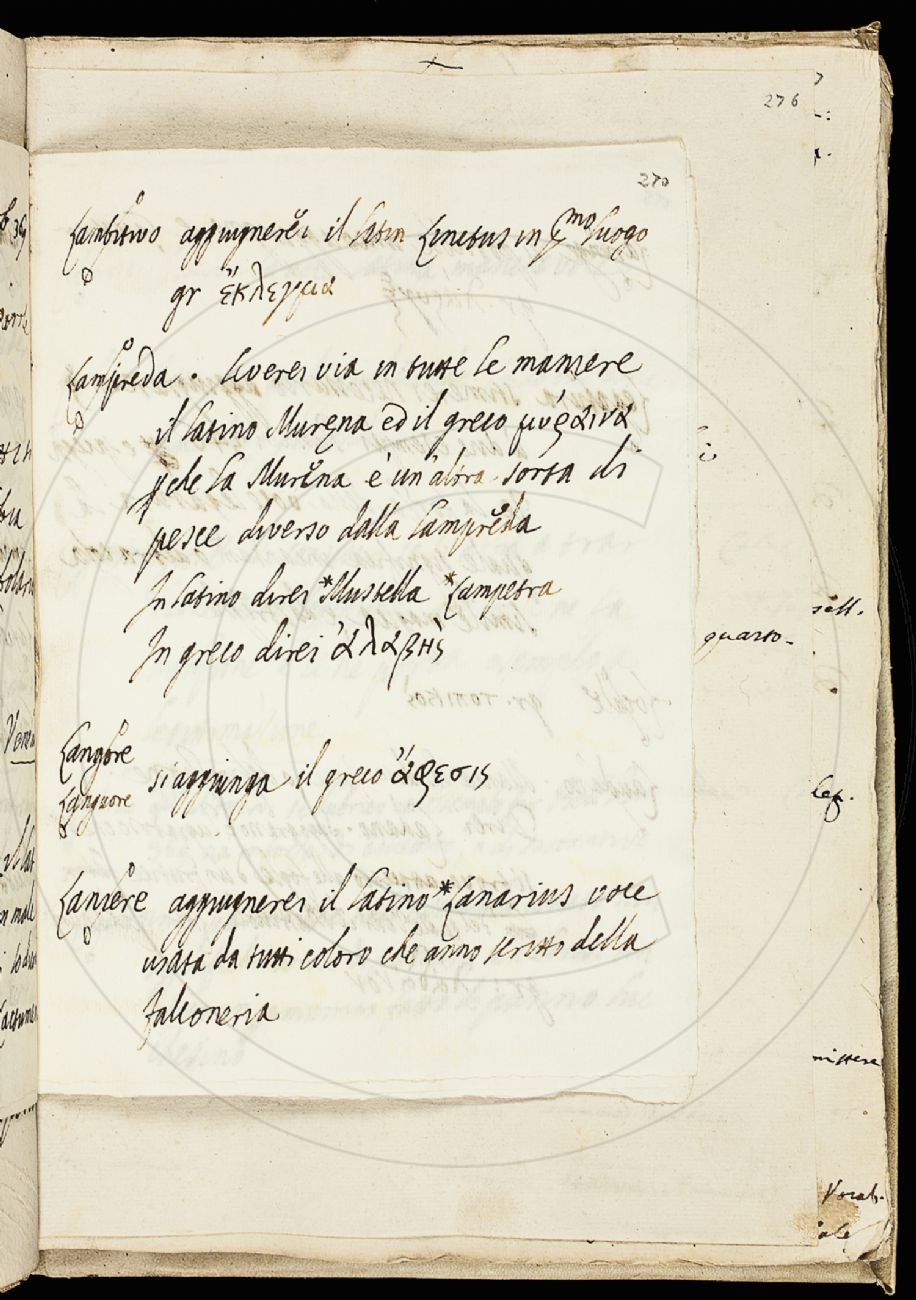 276
270
Lambitivo aggiugnerei il latin Linctus in pmo luogo
gr ἔκλεγμα
Lampreda. Leverei via in tutte le maniere
il latino Muręna ed il greco μύραινα
pche la Murena è un'altra sorta di
pesce diverso dalla Lampreda
In latino direi *Mustella *Lampetra
In greco direi ἀλαβὴς
Langore
Languore si aggiunga il greco ἄφεσις
Laniere aggiugnerei il latino *Lanarius voce
usata da tutti coloro che anno scritto della
falconeria
quarto
mittere
Vocab.